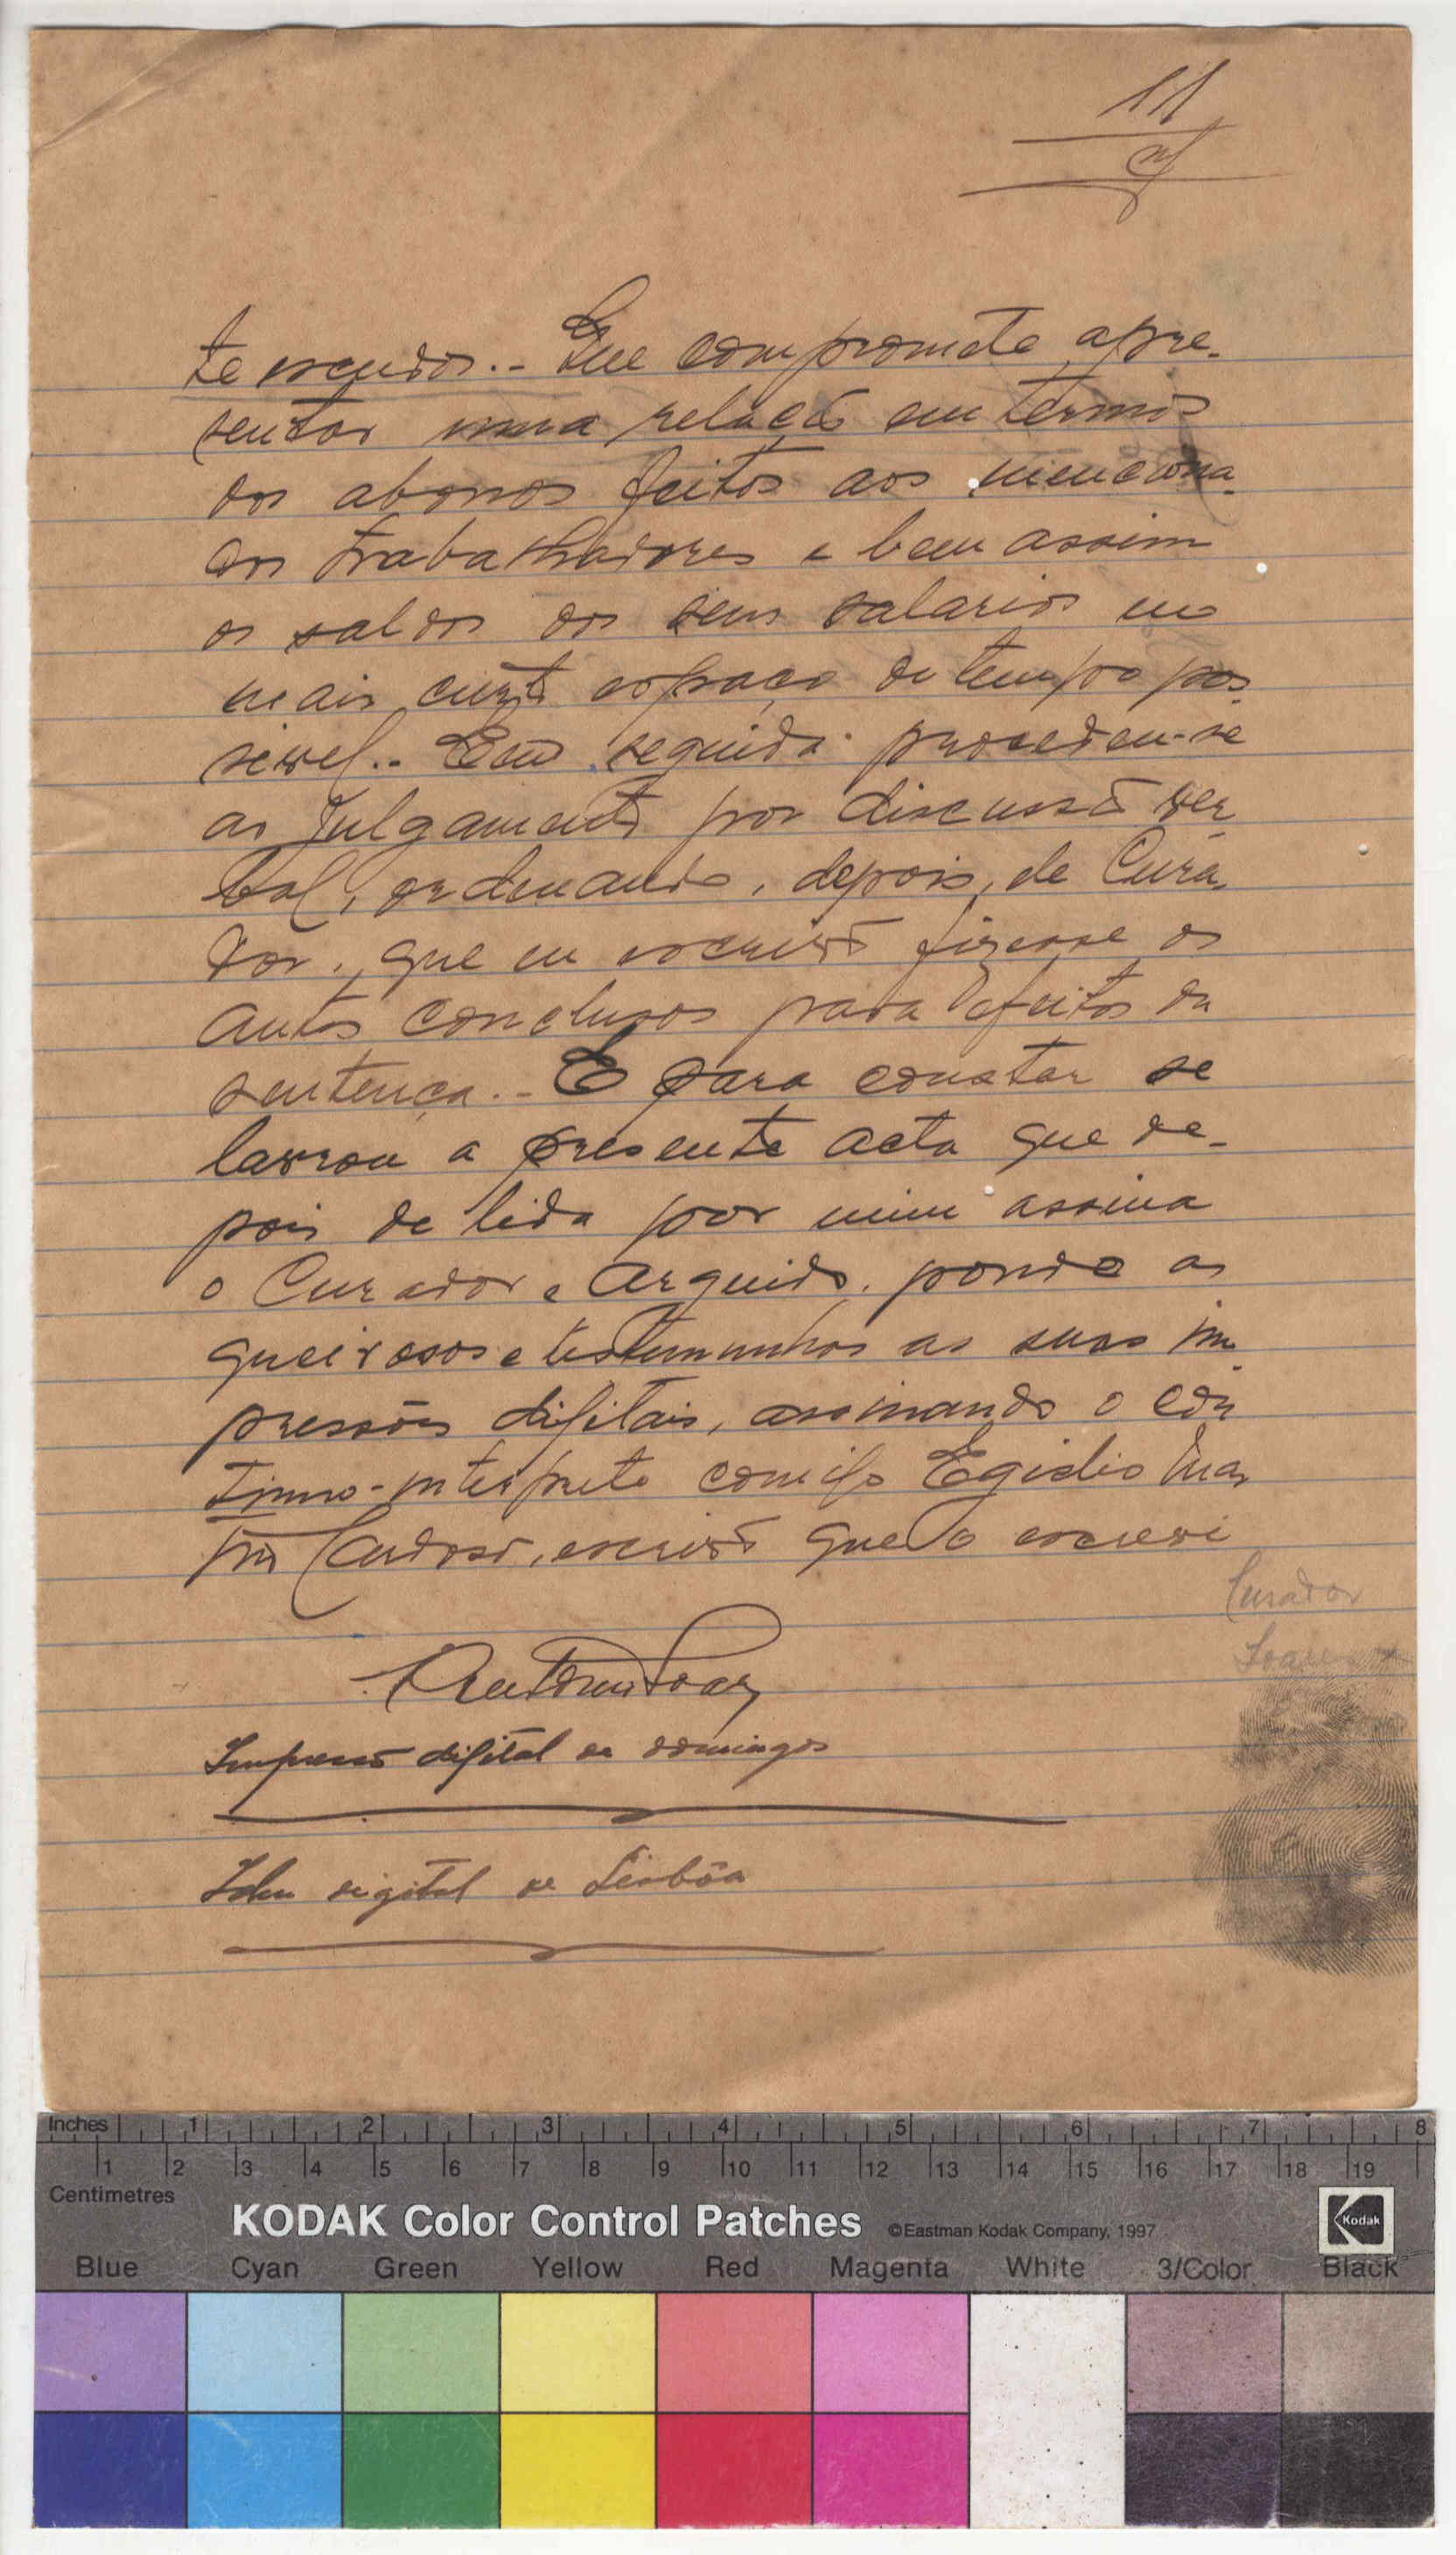 11
te escudos.- Que compromete apre-
sentar uma relação em termos
dos abonos feitos aos menciona-
dos trabalhadores e bem assim
os saldos dos seus salarios no
mais curto espaço de tempo pos-
sivel.- Em seguida procedeu-se
ao julgamento por discussão ver-
bal, ordenando, depois, ele Cura-
dor, que eu escrivão fizesse os
autos conclusos para efeitos da
sentença.- E para constar se
lavrou a presente acta que de-
pois de lida por mim assina
o Curador e Arguido, pondo os
queixosos e testemunhas as suas im-
pressões digitais, assinando o con-
tinuo-interprete comigo Egidio
Cardoso, escrivão que o escrevi
Curador
Soares
Antonio Soares
Impressão digital de domingos
Idem digital de Lisbôa
Inches 1 2 3 4 5 6 7 8
1 2 3 4 5 6 7 8 9 10 11 12 13 14 15 16 17 18 19
Centimetres
KODAK Color Control Patches ©Eastman Kodak Company, 1997 Kodak
Blue Cyan Green Yellow Red Magenta White 3/Color Black